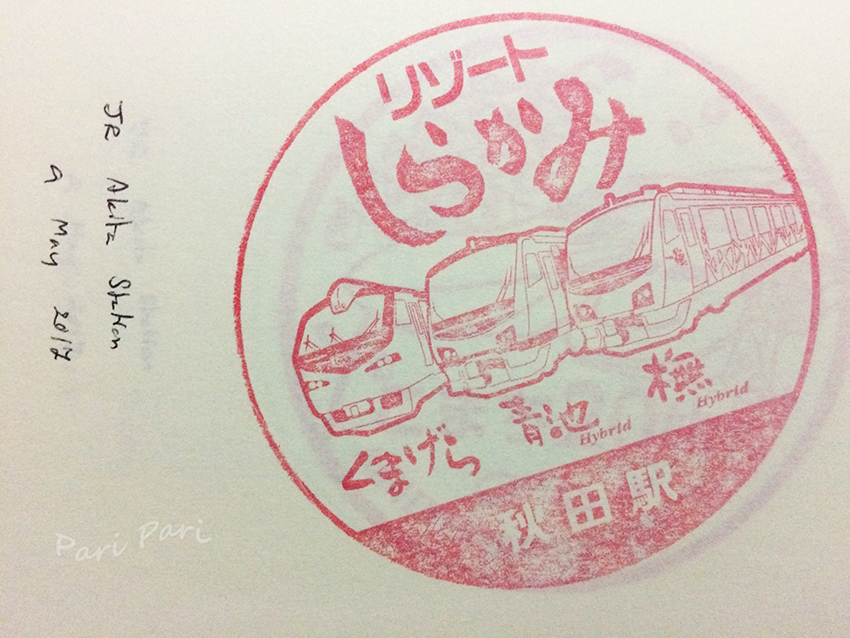 リゾート
しらかみ
くまげら
青池
Hybrid
橅
Hybrid
秋田駅
JR Akita Station
9 May 2017
Pari Pari